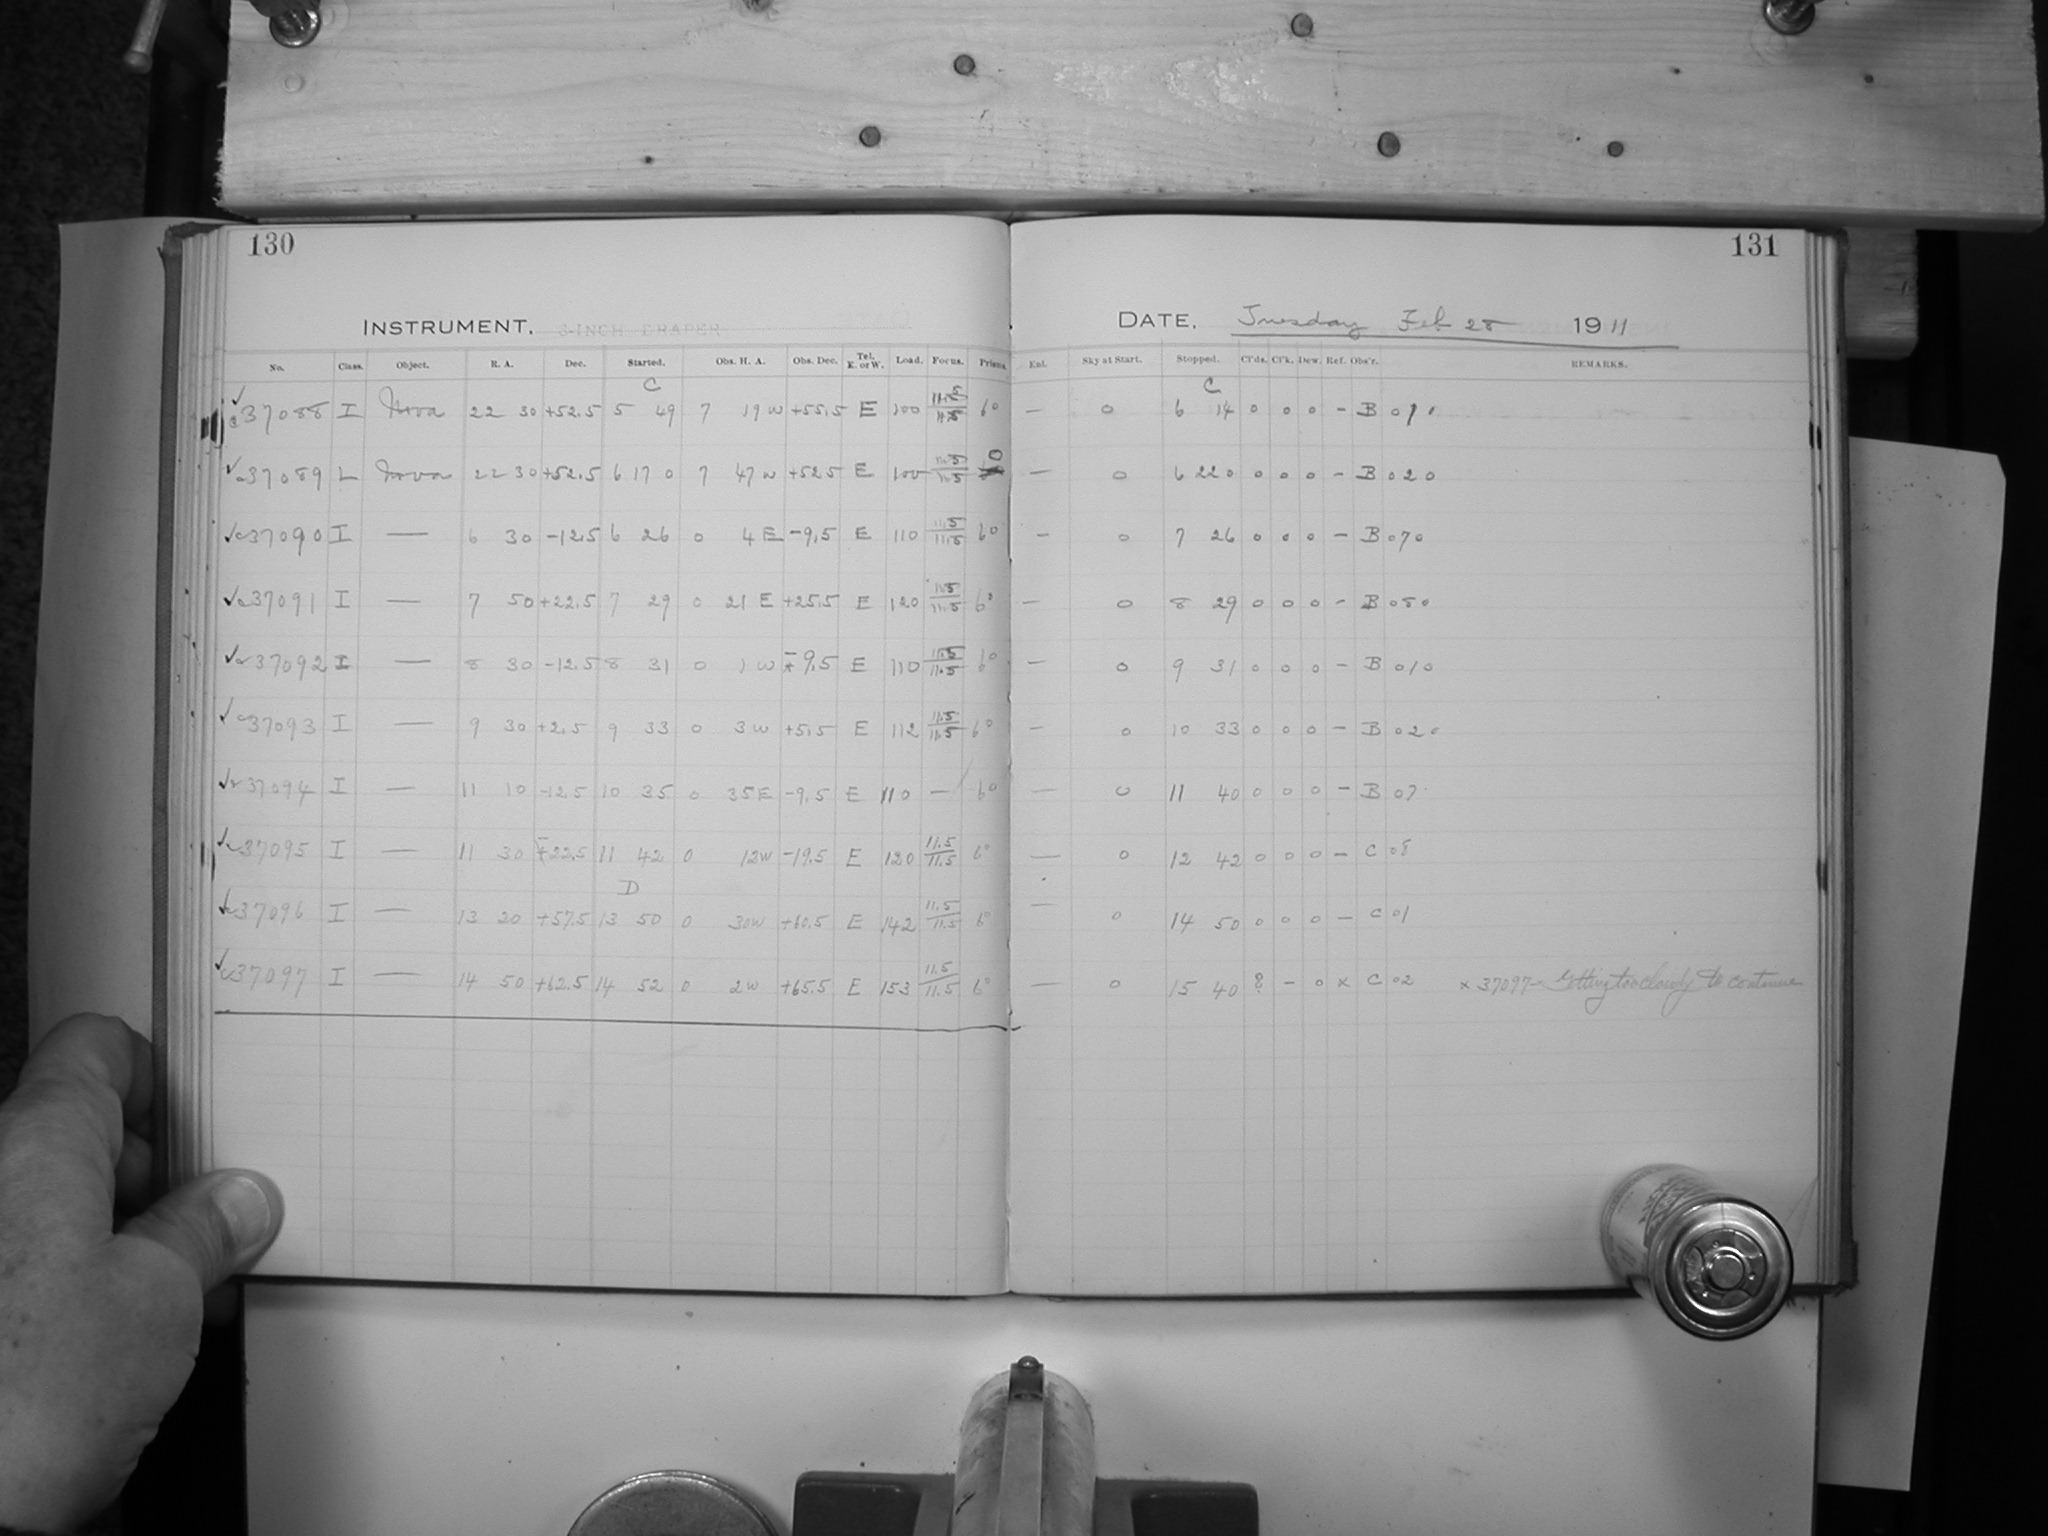 130
131
INSTRUMENT. 8-INCH DRAPER
DATE. Tuesday Feb 28 1911
No. Class. Object. R. A. Dec. Started. Obs. H. A. Obs. Dec. Tel. E. or W. Load. Focus. Prisms. Ext. Sky at Start. Stopped. Cl'ds. Cl'k. Dew. Ref. Obs'r. REMARKS.
C C
✓ c37088 I Nova 22 30 +52.5 5 49 7 19 W +55.5 E 100 11.5/11.5 6° — 0 6 14 0 0 0 – B 010
✓ c37089 L Nova 22 30 +52.5 6 17 0 7 47 W +52.5 E 100 11.5/11.5 0 — 0 6 22 0 0 0 0 – B 020
✓ c37090 I — 6 30 -12.5 6 26 0 4 E -9.5 E 110 11.5/11.5 6° — 0 7 26 0 0 0 – B 070
✓ c37091 I — 7 50 +22.5 7 29 0 21 E +25.5 E 120 11.5/11.5 6° — 0 8 29 0 0 0 – B 080
✓ c37092 I — 8 30 -12.5 8 31 0 1 W -9.5 E 110 11.5/11.5 6° — 0 9 31 0 0 0 – B 010
✓ c37093 I — 9 30 +2.5 9 33 0 3 W +5.5 E 112 11.5/11.5 6° — 0 10 33 0 0 0 – B 020
✓ c37094 I — 11 10 -12.5 10 35 0 35 E -9.5 E 110 — 6° — 0 11 40 0 0 0 – B 07
✓ c37095 I — 11 30 -22.5 11 42 0 12 W -19.5 E 120 11.5/11.5 6° — 0 12 42 0 0 0 – C 08
D
✓ c37096 I — 13 20 +57.5 13 50 0 30 W +60.5 E 142 11.5/11.5 6° — 0 14 50 0 0 0 – C 01
✓ c37097 I — 14 50 +62.5 14 52 0 2 W +65.5 E 153 11.5/11.5 6° — 0 15 40 8 – 0 x C 02 x 37097– Getting too cloudy to continue